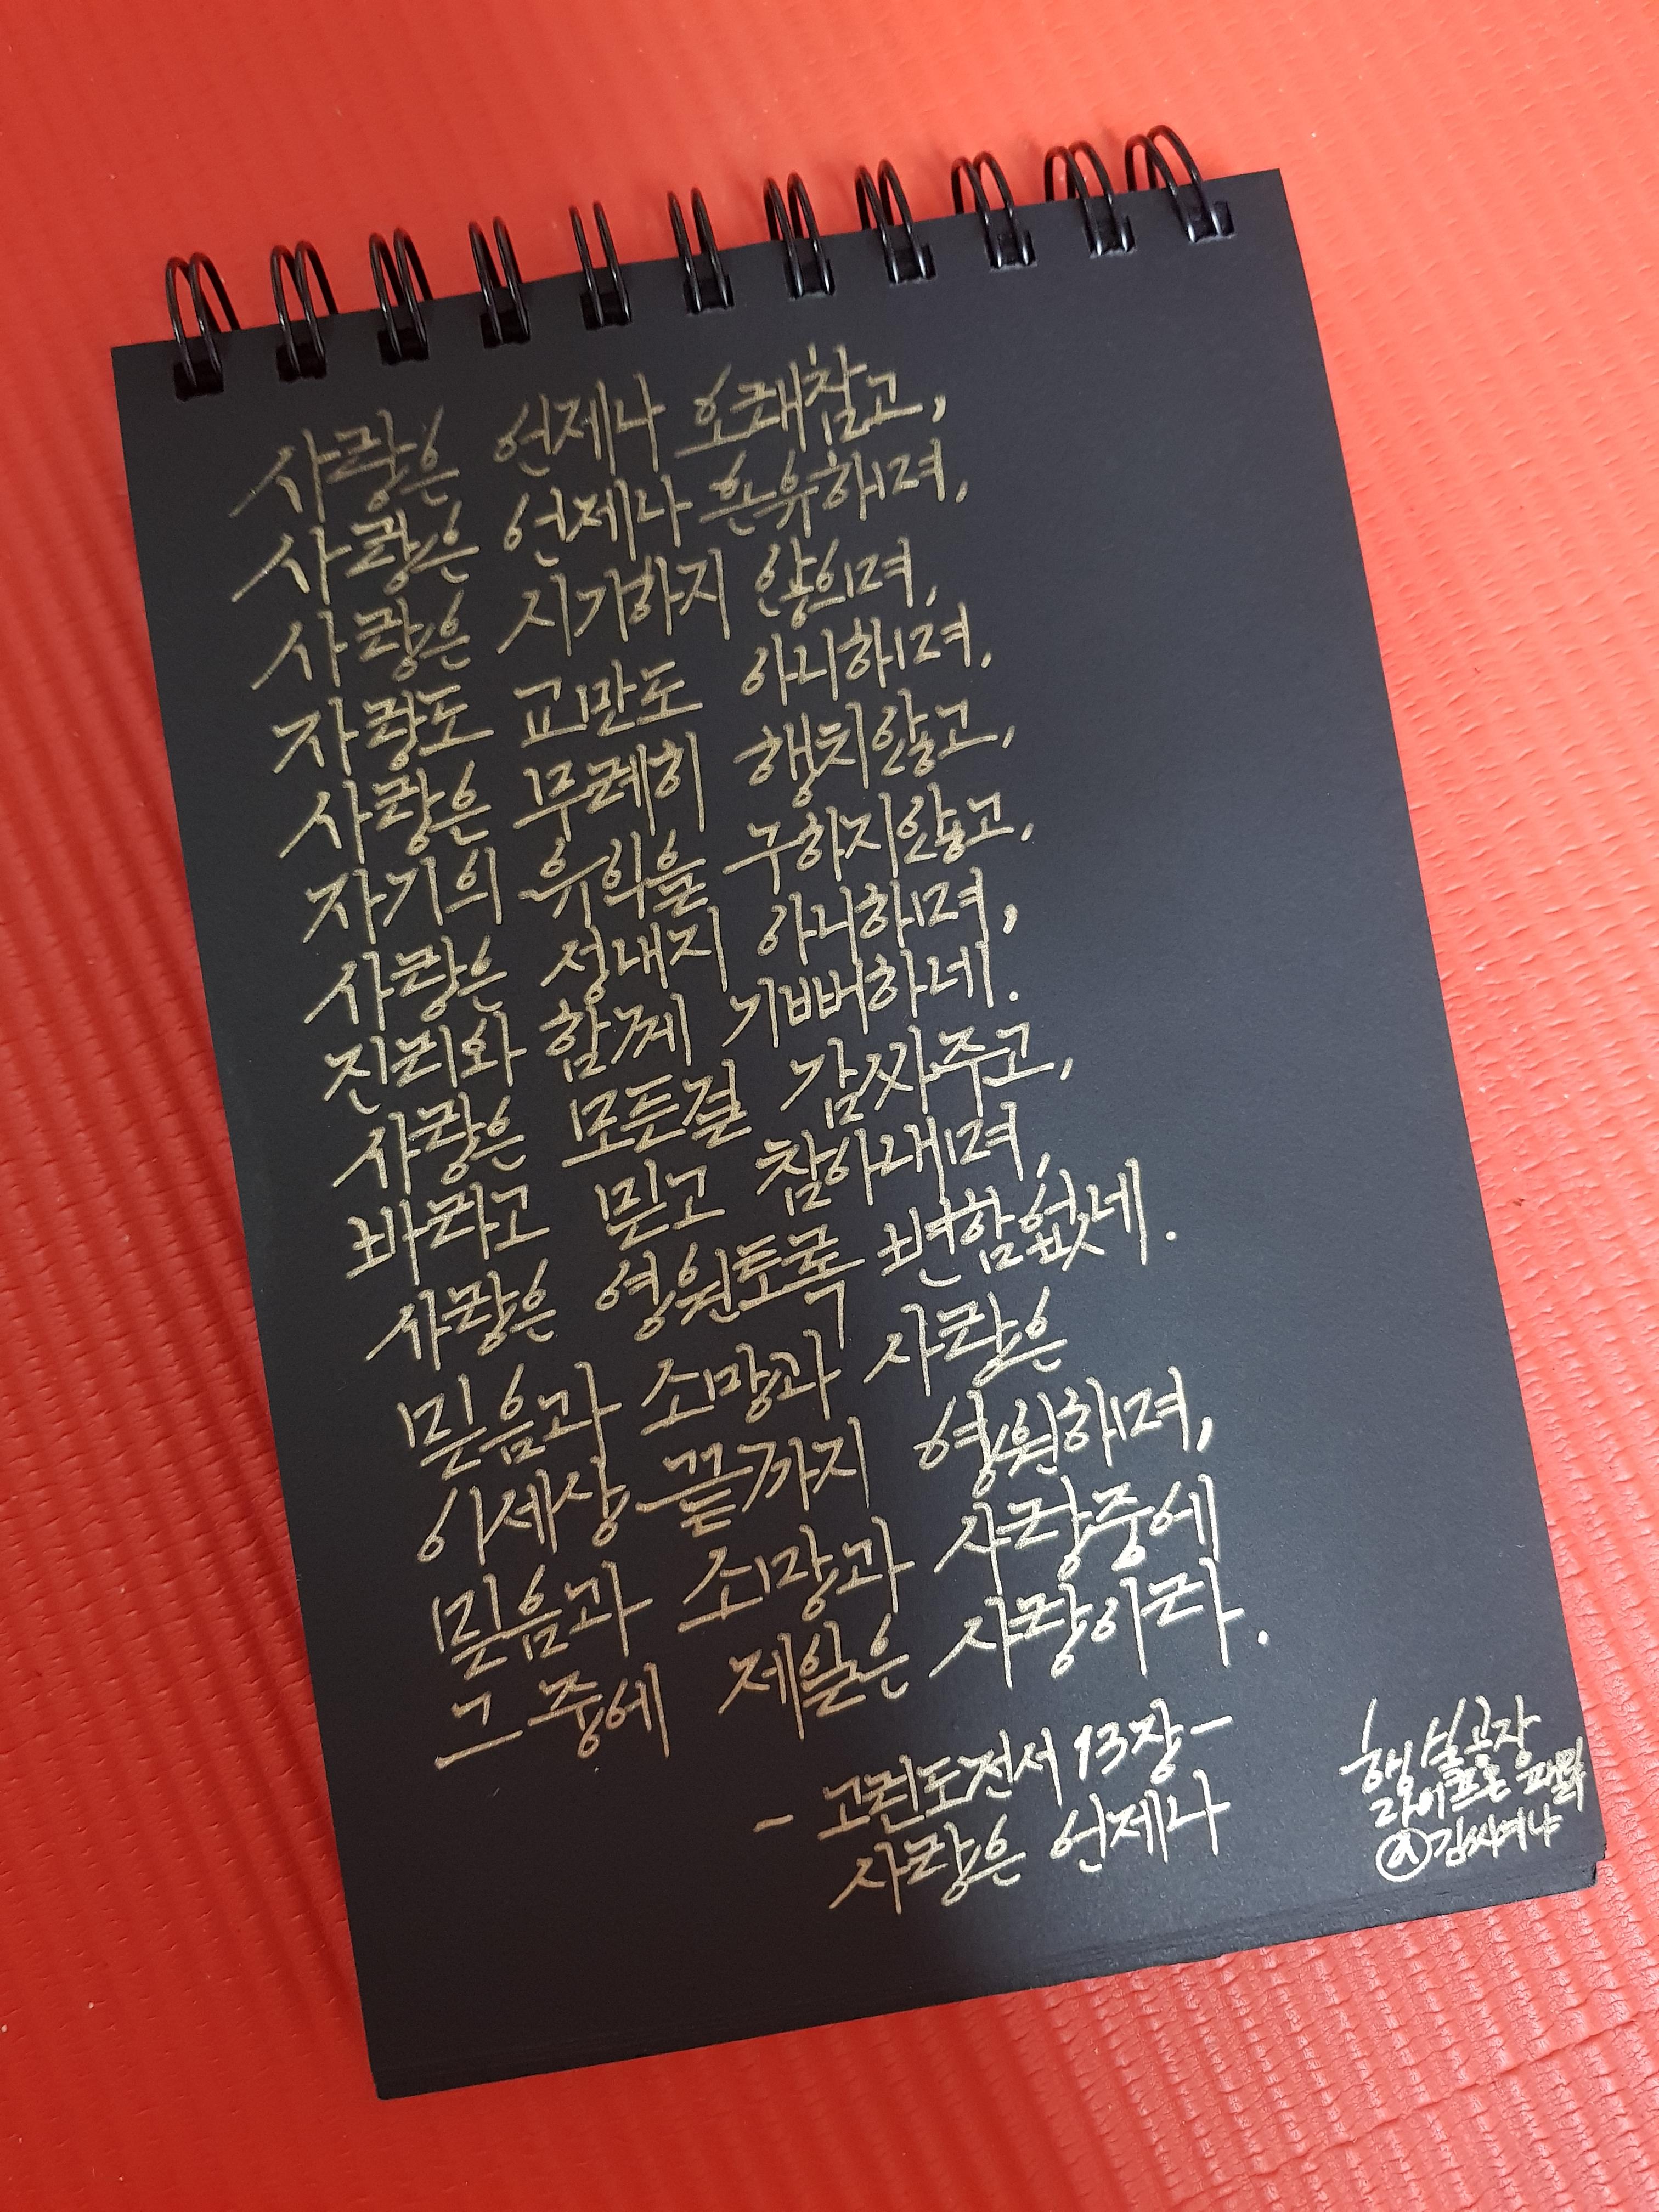 사랑은 언제나 오래참고,
사랑은 언제나 온유하며,
사랑은 시기하지 않으며,
자랑도 교만도 아니하며.
사랑은 무례히 행치않고,
자기의 유익을 구하지않고.
사랑은 성내지 아니하며,
진리와 함께 기뻐하네.
사랑은 모든걸 감싸주고,
바라고 믿고 참아내며,
사랑은 영원토록 변함없네.
믿음과 소망과 사랑은
이세상 끝까지 영원하며,
믿음과 소망과 사랑중에
그 중에 제일은 사랑이라.
- 고린도전서 13장 -
사랑은 언제나
행복공장